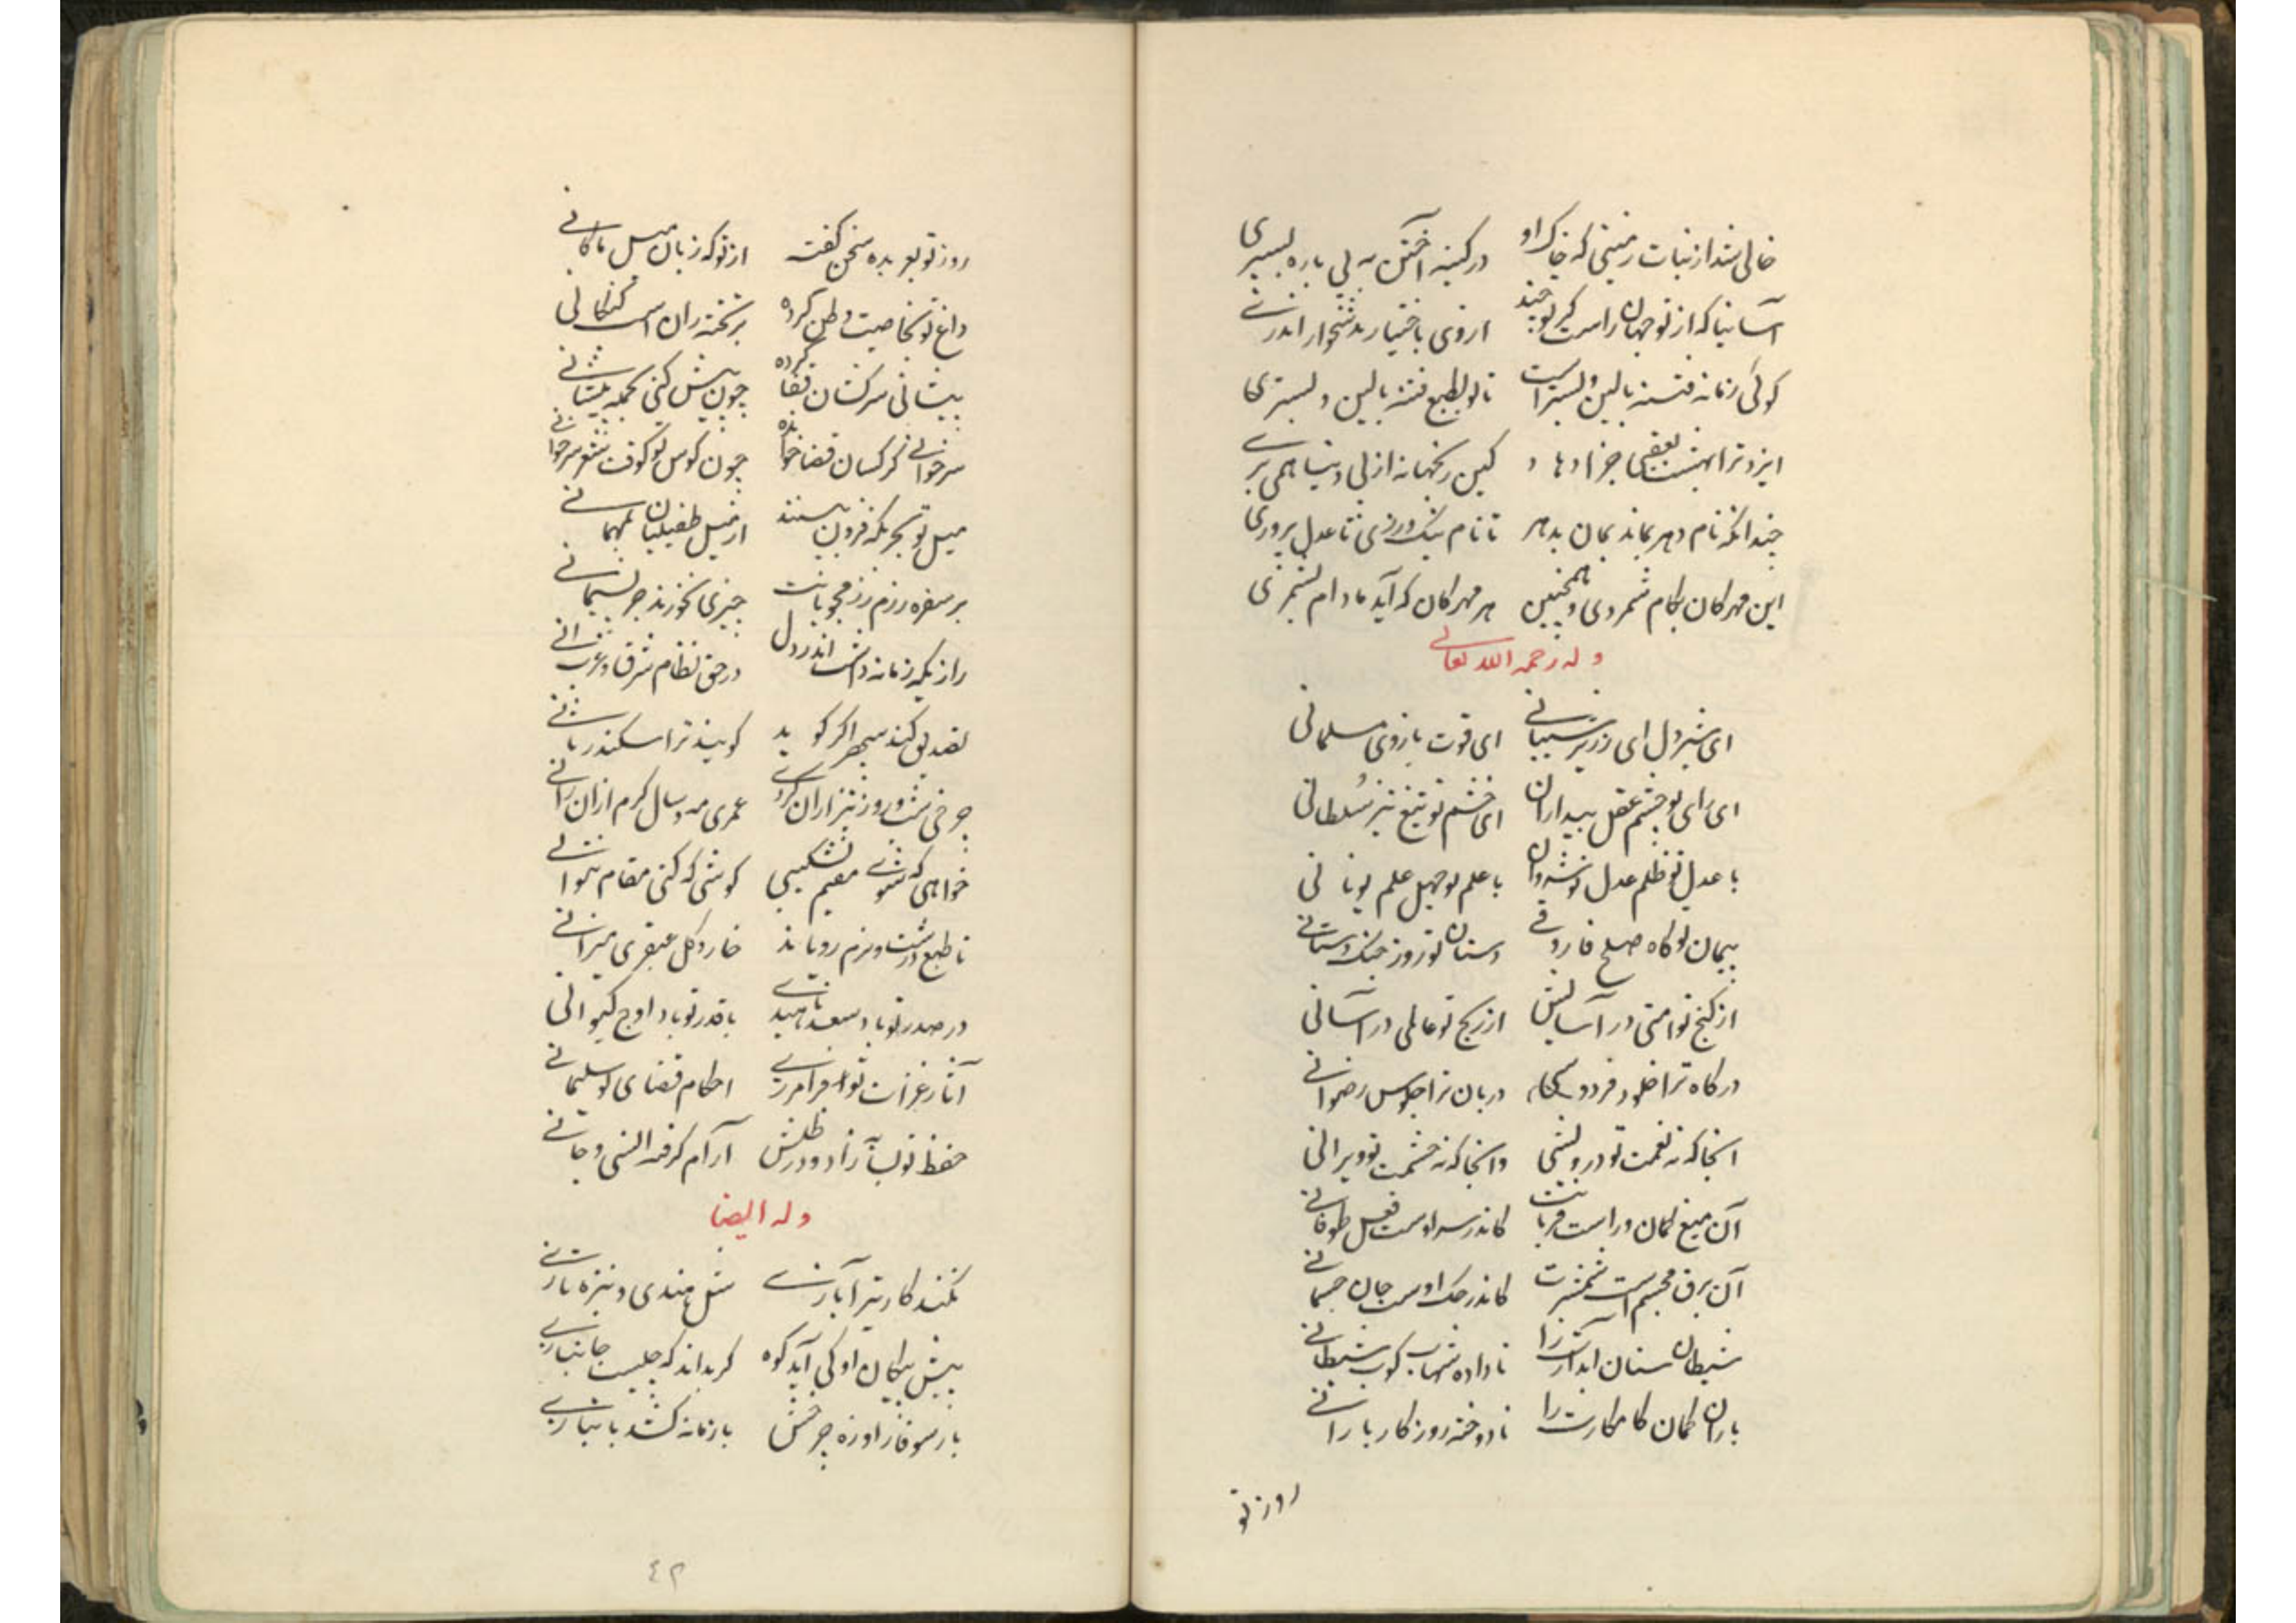 خالی شد از نبات زمینی که خاک او در کینه آختن به پی باره بسپری
آسانیا که از تو جهان راست گر تو چند از وی باختیار بدشخوار اندری
کوئی زمانه فتنه بالین و بستر است تا تو بطبع فتنه بالین و بستری
ایزد ترا بهشت بعقبی جزا دهاد کین رنجها نه از پی دنیا همی بری
چندانکه نام دهر بماند بمان بدهر تا نام نیک ورزی تا عدل پروری
این مهرکان بکام شمردی و همچنین هر مهرکان که آید مادام بشمری
وله رحمه الله تعالی
ای شیردل ای زریر شیبانی ای قوت بازوی مسلمانی
ای رای تو چشم عقل بیداران ای خشم تو تیغ تیز سلطانی
با عدل تو ظلم عدل نوشروان با علم تو جهل علم یونانی
پیمان تو گاه صلح فاروقی دستان تو روز جنک دستانی
از کنج تو امتی در آسایش از رنج تو عالمی در آسانی
درگاه ترا خلود فردوسی دربان ترا جلوس رضوانی
آنجا که نه نعمت تو درویشی وانجا که نه حشمت تو ویرانی
آن میغ کمان وراست قربانت کاندر سر اوست فعل طوفانی
آن برق مجسم است شمشیرت کاندر حک اوست جان جسمانی
شیطان سنان آبدارت را ناداده شهاب کوب شیطانی
باران کمان کامکارت را نادوخته روزگار بارانی
روز تو
روز تو بعربده سخن کفته از نوک زبان میل ماکانی
داغ تو بخاصیت وطن کرده بر تخته ران اسب کنعانی
پیشانی سرکشان قفا کرده چون پیش کنی بحمله پیشانی
سرخوانی کرکسان قضا خوانده چون کوس تو کوفت شعر سرخوانی
میل تو بجربکه فزون بینند از میل طفیلیان بمهمانی
بر سفره رزم رزمجویانت چیزی نخورند جز پشیمانی
رازیکه زمانه داشت اندر دل در حق نظام شرق و غرب دانی
تصدیق کند سپهر اگر گوید کویند ترا سکندر ثانی
چرخی شب و روز نیز از آن کردی عمری مه و سال کرم از آن رانی
خواهی که شوی مقیم نشکیبی کوشی که کنی مقام نتوانی
تا طبع درشت و نرم رویاند خار و کل عبقری میزانی
در صدر تو باد سعد ناهیدی با قدر تو باد اوج کیوانی
آثار غزات تو فرامرزی احکام قضای تو سلیمانی
حفظ تو بسآ زاد و در ظلش آرام کرفته انسی و جانی
وله ایضا
نکند کار تیر آبازی شل هندی و نیزه تازی
پیش پیکان او کی آید کوه کر بداند که چیست جانبازی
باز سوفار او زه چرخش با زمانه کشد بانبازی
٤٢